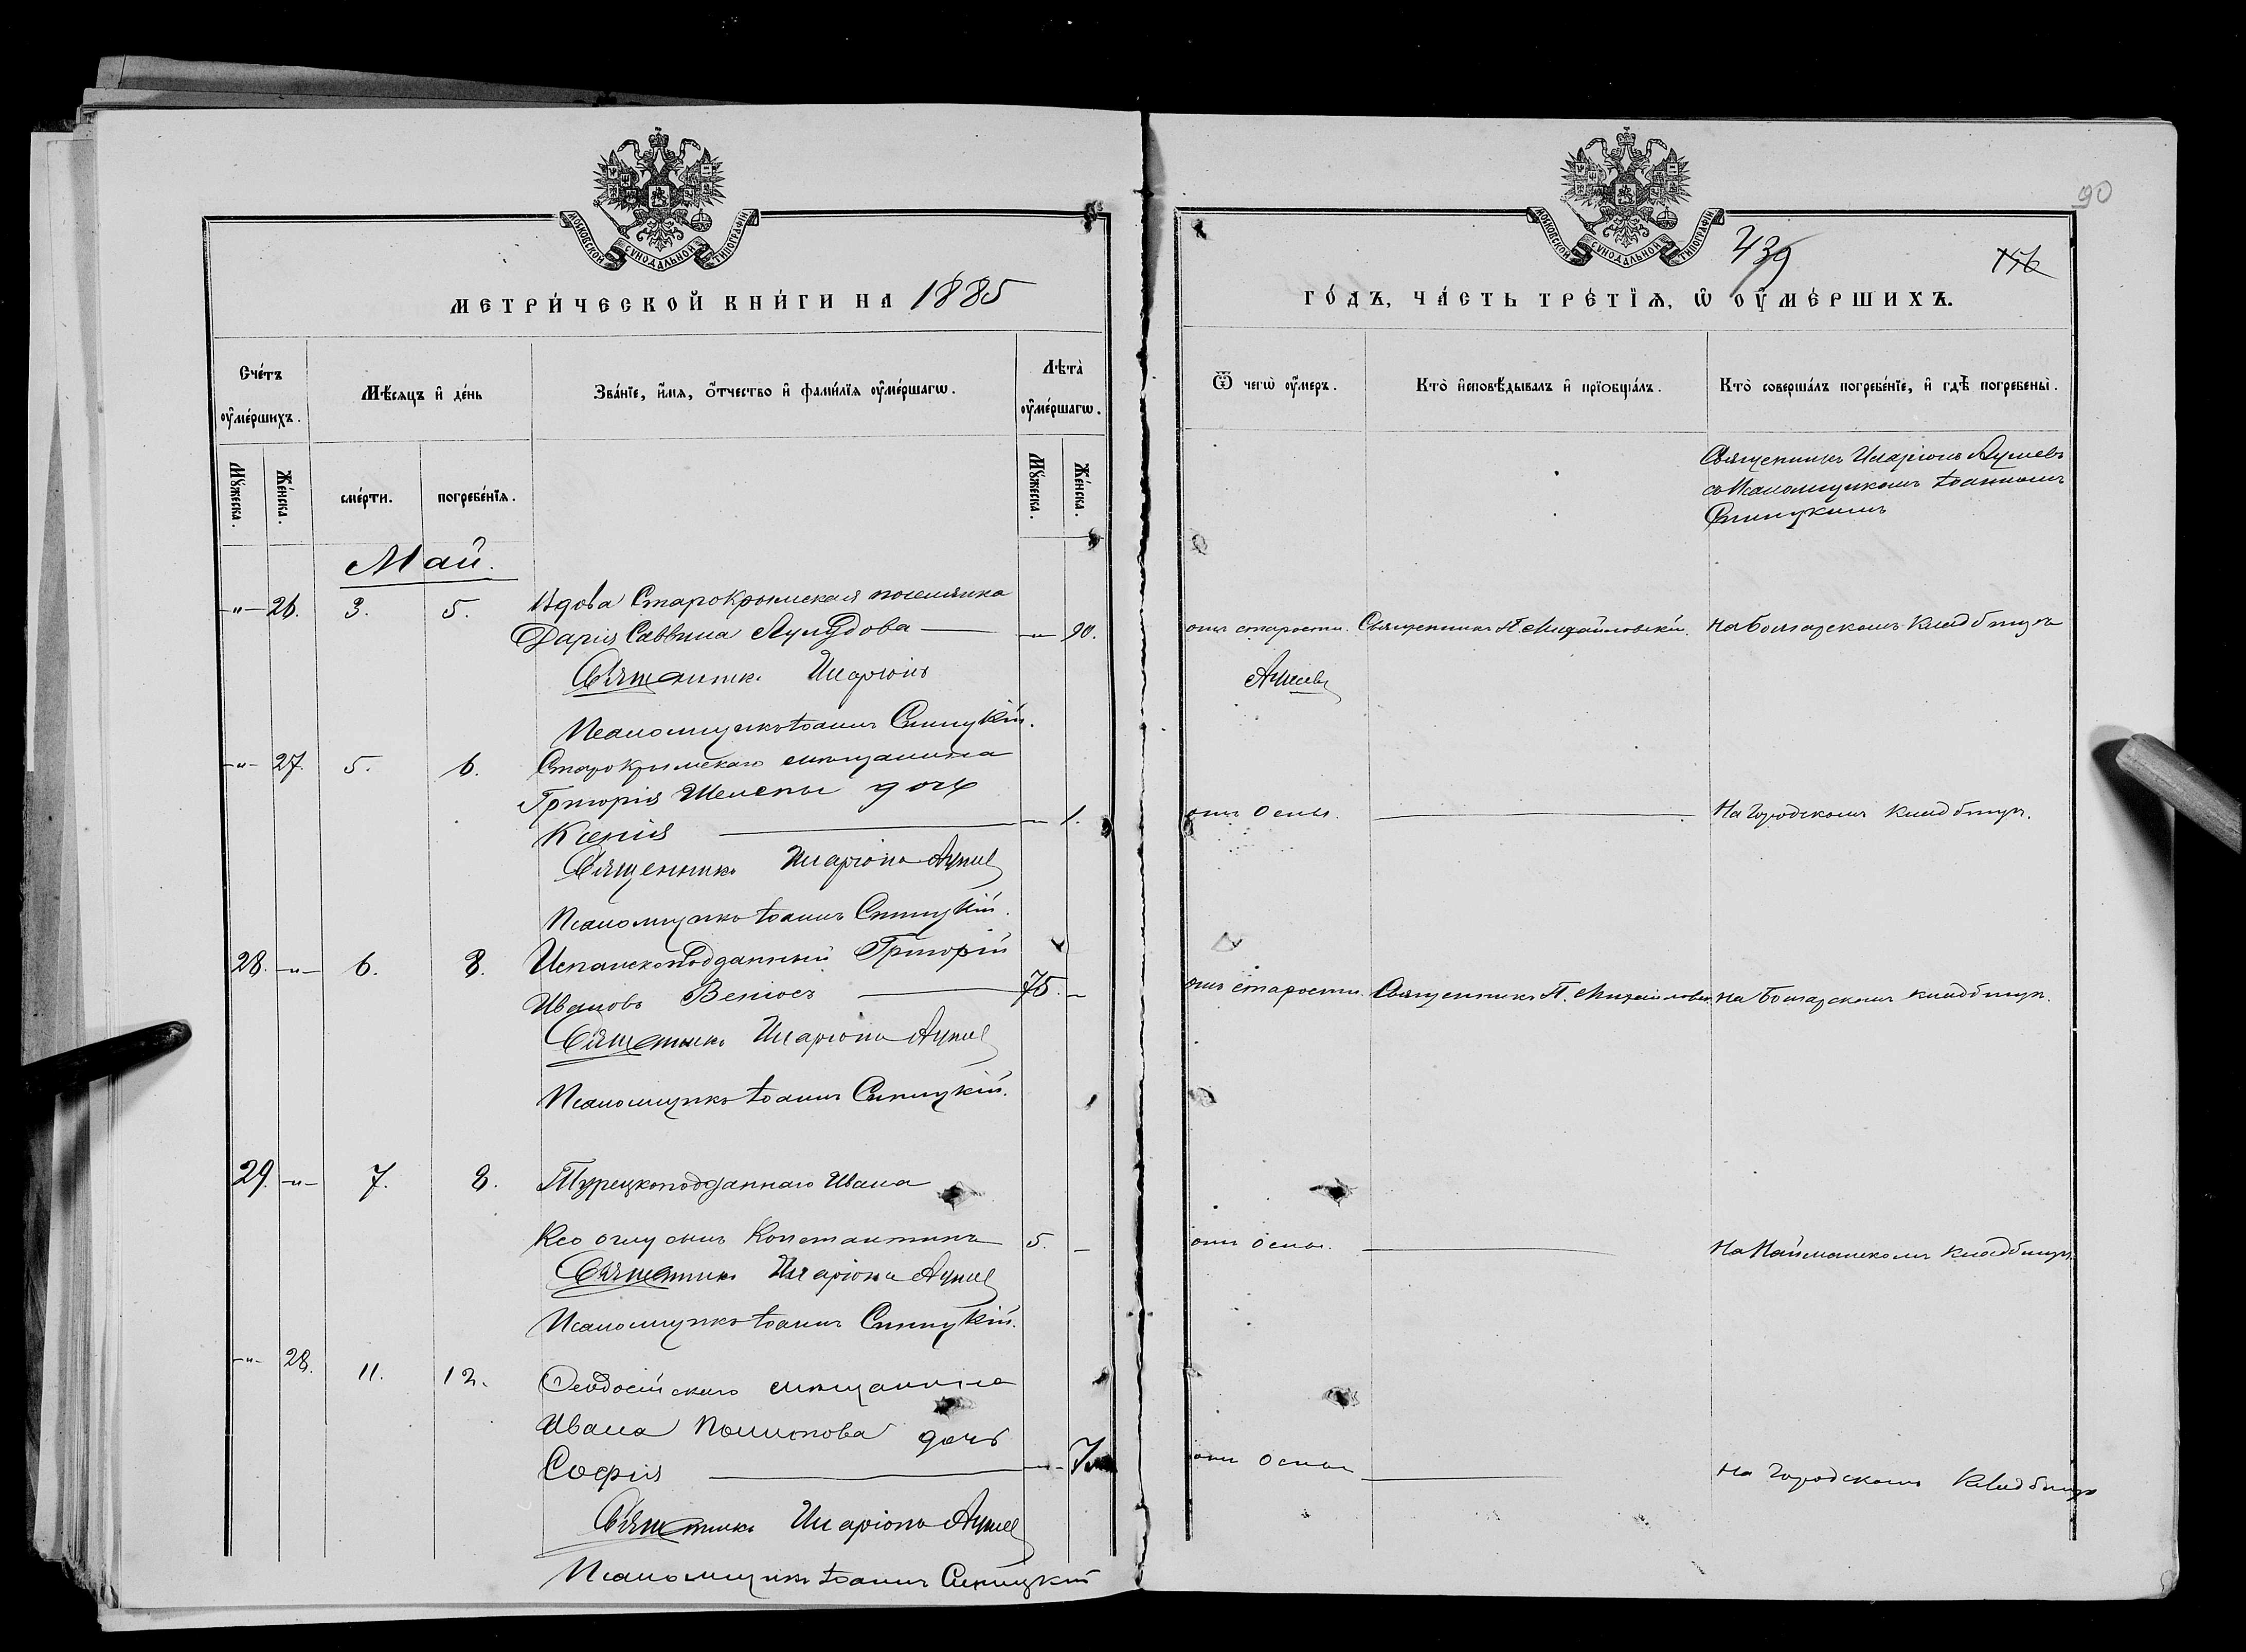 МОСКОВСКОЙ СѴНОДАЛЬНОЙ ТИПОГРАФІИ
МЕТРИ́ЧЕСКОЙ КНИ́ГИ НА 1885
Сче́тъ оу҆ме́ршихъ.
Мѣ́сяцъ и҆ де́нь
Зва́нїе, и҆́мя, о҆́тчество и҆ фами́лїя оу҆ме́ршагѡ.
Лѣта̀ оу҆ме́ршагѡ.
Мꙋ́жеска.
Же́нска.
сме́рти.
погребе́нїя.
Мꙋ́жеска.
Же́нска.
Май.
-"- 26. 3. 5. Вдова Старокрымская поселянка
Дарія Саввина -"- 90.
Священникъ Иларіонъ
Псаломщикъ Іоаннъ Синицкій.
-"- 27. 5. 6. Старокрымскаго мѣщанина
Григорія Шелепы дочь
Ксенія - 1.
Священникъ Иларіонъ
Псаломщикъ Іоаннъ Синицкій.
28. -"- 6. 8. Испанскоподданный Григорій
Ивановъ 75. -
Священникъ Иларіонъ
Псаломщикъ Іоаннъ Синицкій.
29. -"- 7. 8. Турецкоподданнаго Ивана
сынъ Константинъ 5. -
Священникъ Иларіонъ
Псаломщикъ Іоаннъ Синицкій.
-"- 28. 11. 12. Ѳеодосійскаго мѣщанина
Ивана дочь
Софія -"- 7
Священникъ Иларіонъ
Псаломщикъ Іоаннъ Синицкій
90
МОСКОВСКОЙ СѴНОДАЛЬНОЙ ТИПОГРАФІИ
439
156
ГО́ДЪ, ЧА́СТЬ ТРЕ́ТЇѦ, Ѡ҆ ОУ҆МЕ́РШИХЪ.
Ѿ чегѡ̀ оу҆́меръ.
Кто̀ и҆сповѣ́дывалъ и҆ прїобща́лъ.
Кто̀ соверша́лъ погребе́нїе, и҆ гдѣ̀ погребены̀.
Священникъ Иларіонъ
съ Псаломщикомъ Іоанномъ
Синицкимъ
отъ старости. Священникъ П. Михайловскій. На Болгарскомъ кладбищѣ
отъ оспы. На Городскомъ кладбищѣ.
отъ старости. Священникъ П. на Болгарскомъ кладбищѣ.
отъ оспы. На кладбищѣ.
отъ оспы На Городскомъ кладбищѣ